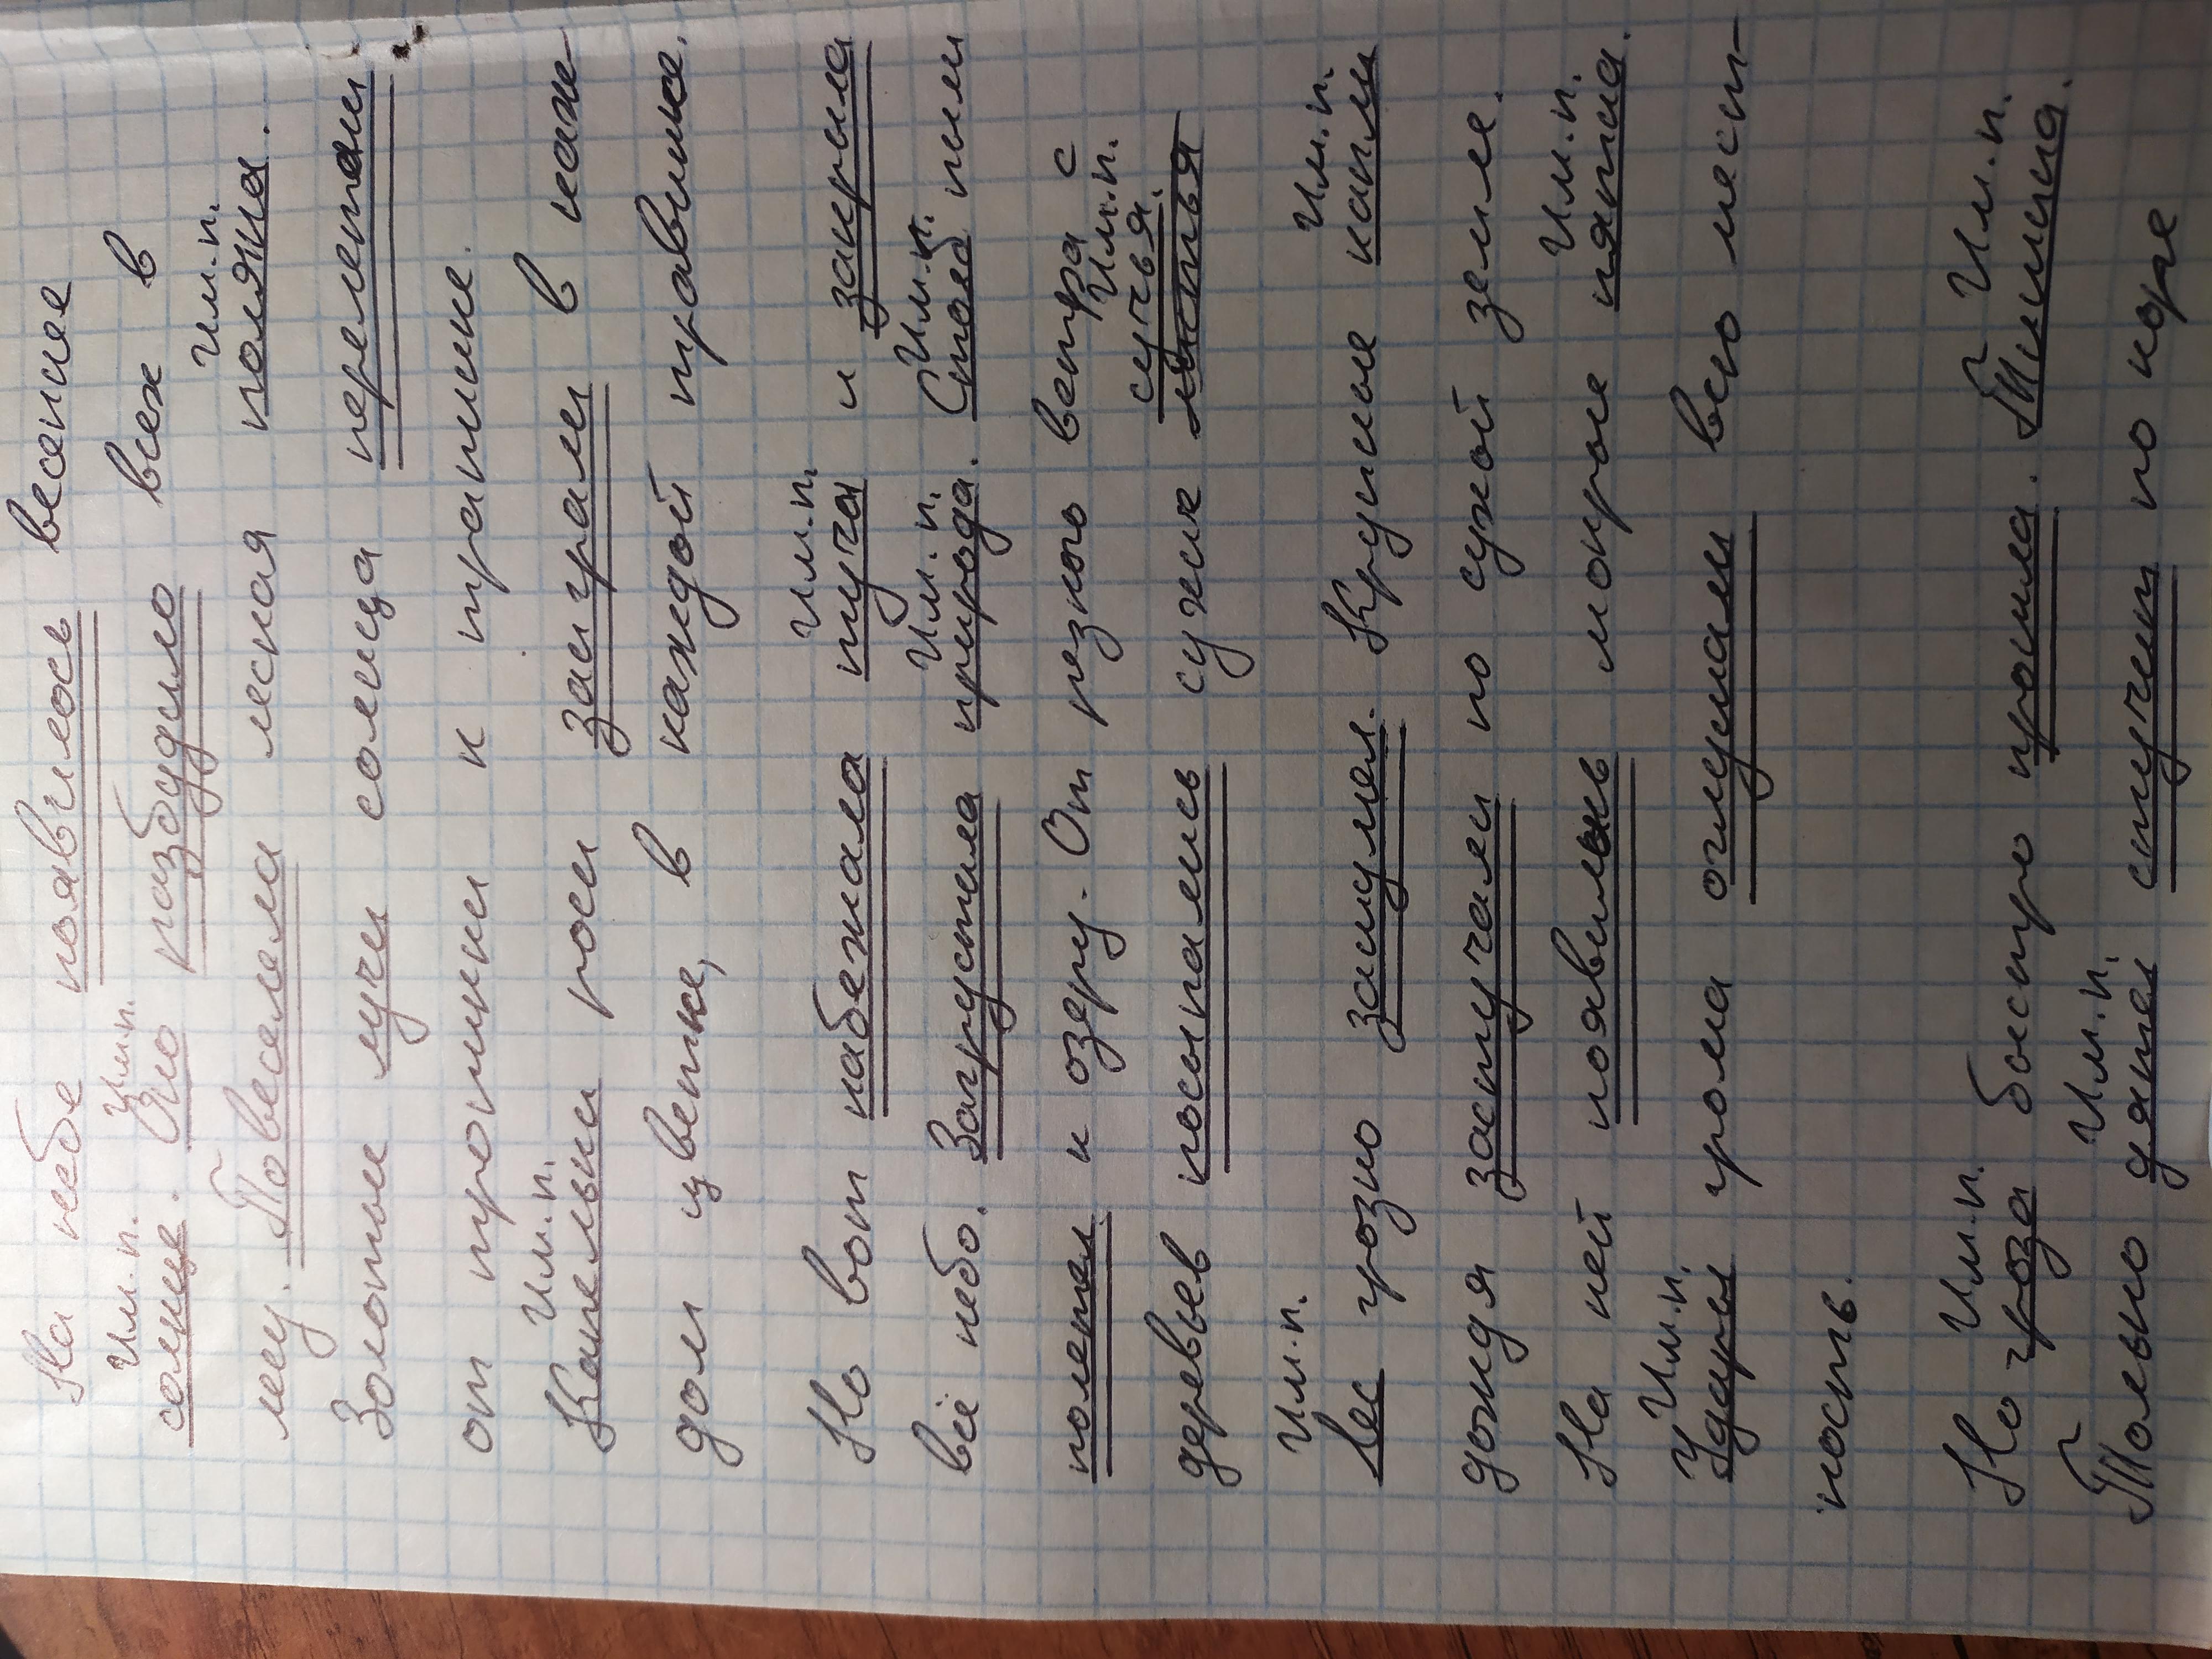 На небе появилось весенее
Им.п. Им.п.
солнце. Оно разбудило всех в
Им.п.
лесу. Повеселела лесная поляна.
Золотые лучи солнца перелетали
от травинки к травинке.
Им.п.
Капельки росы заиграли в каж-
дом цветке, в каждой травинке.
Им.п.
Но вот набежала туча и закрыла
Им.п. Им.п.
всё небо. Загрустила природа. Столб пыли
полетел к озеру. От резкого ветра с
Им.п.
сучья.
деревьев посыпались сухие листья
Им.п. Им.п.
Лес грозно зашумел. Крупные капли
дождя застучали по сухой земле.
Им.п.
На ней появились мокрые пятна.
Им.п.
Удары грома оглушали всю мест-
ность.
Им.п. Им.п.
Но гроза быстро прошла. Тишина.
Им.п.
Только дятел стучит по коре